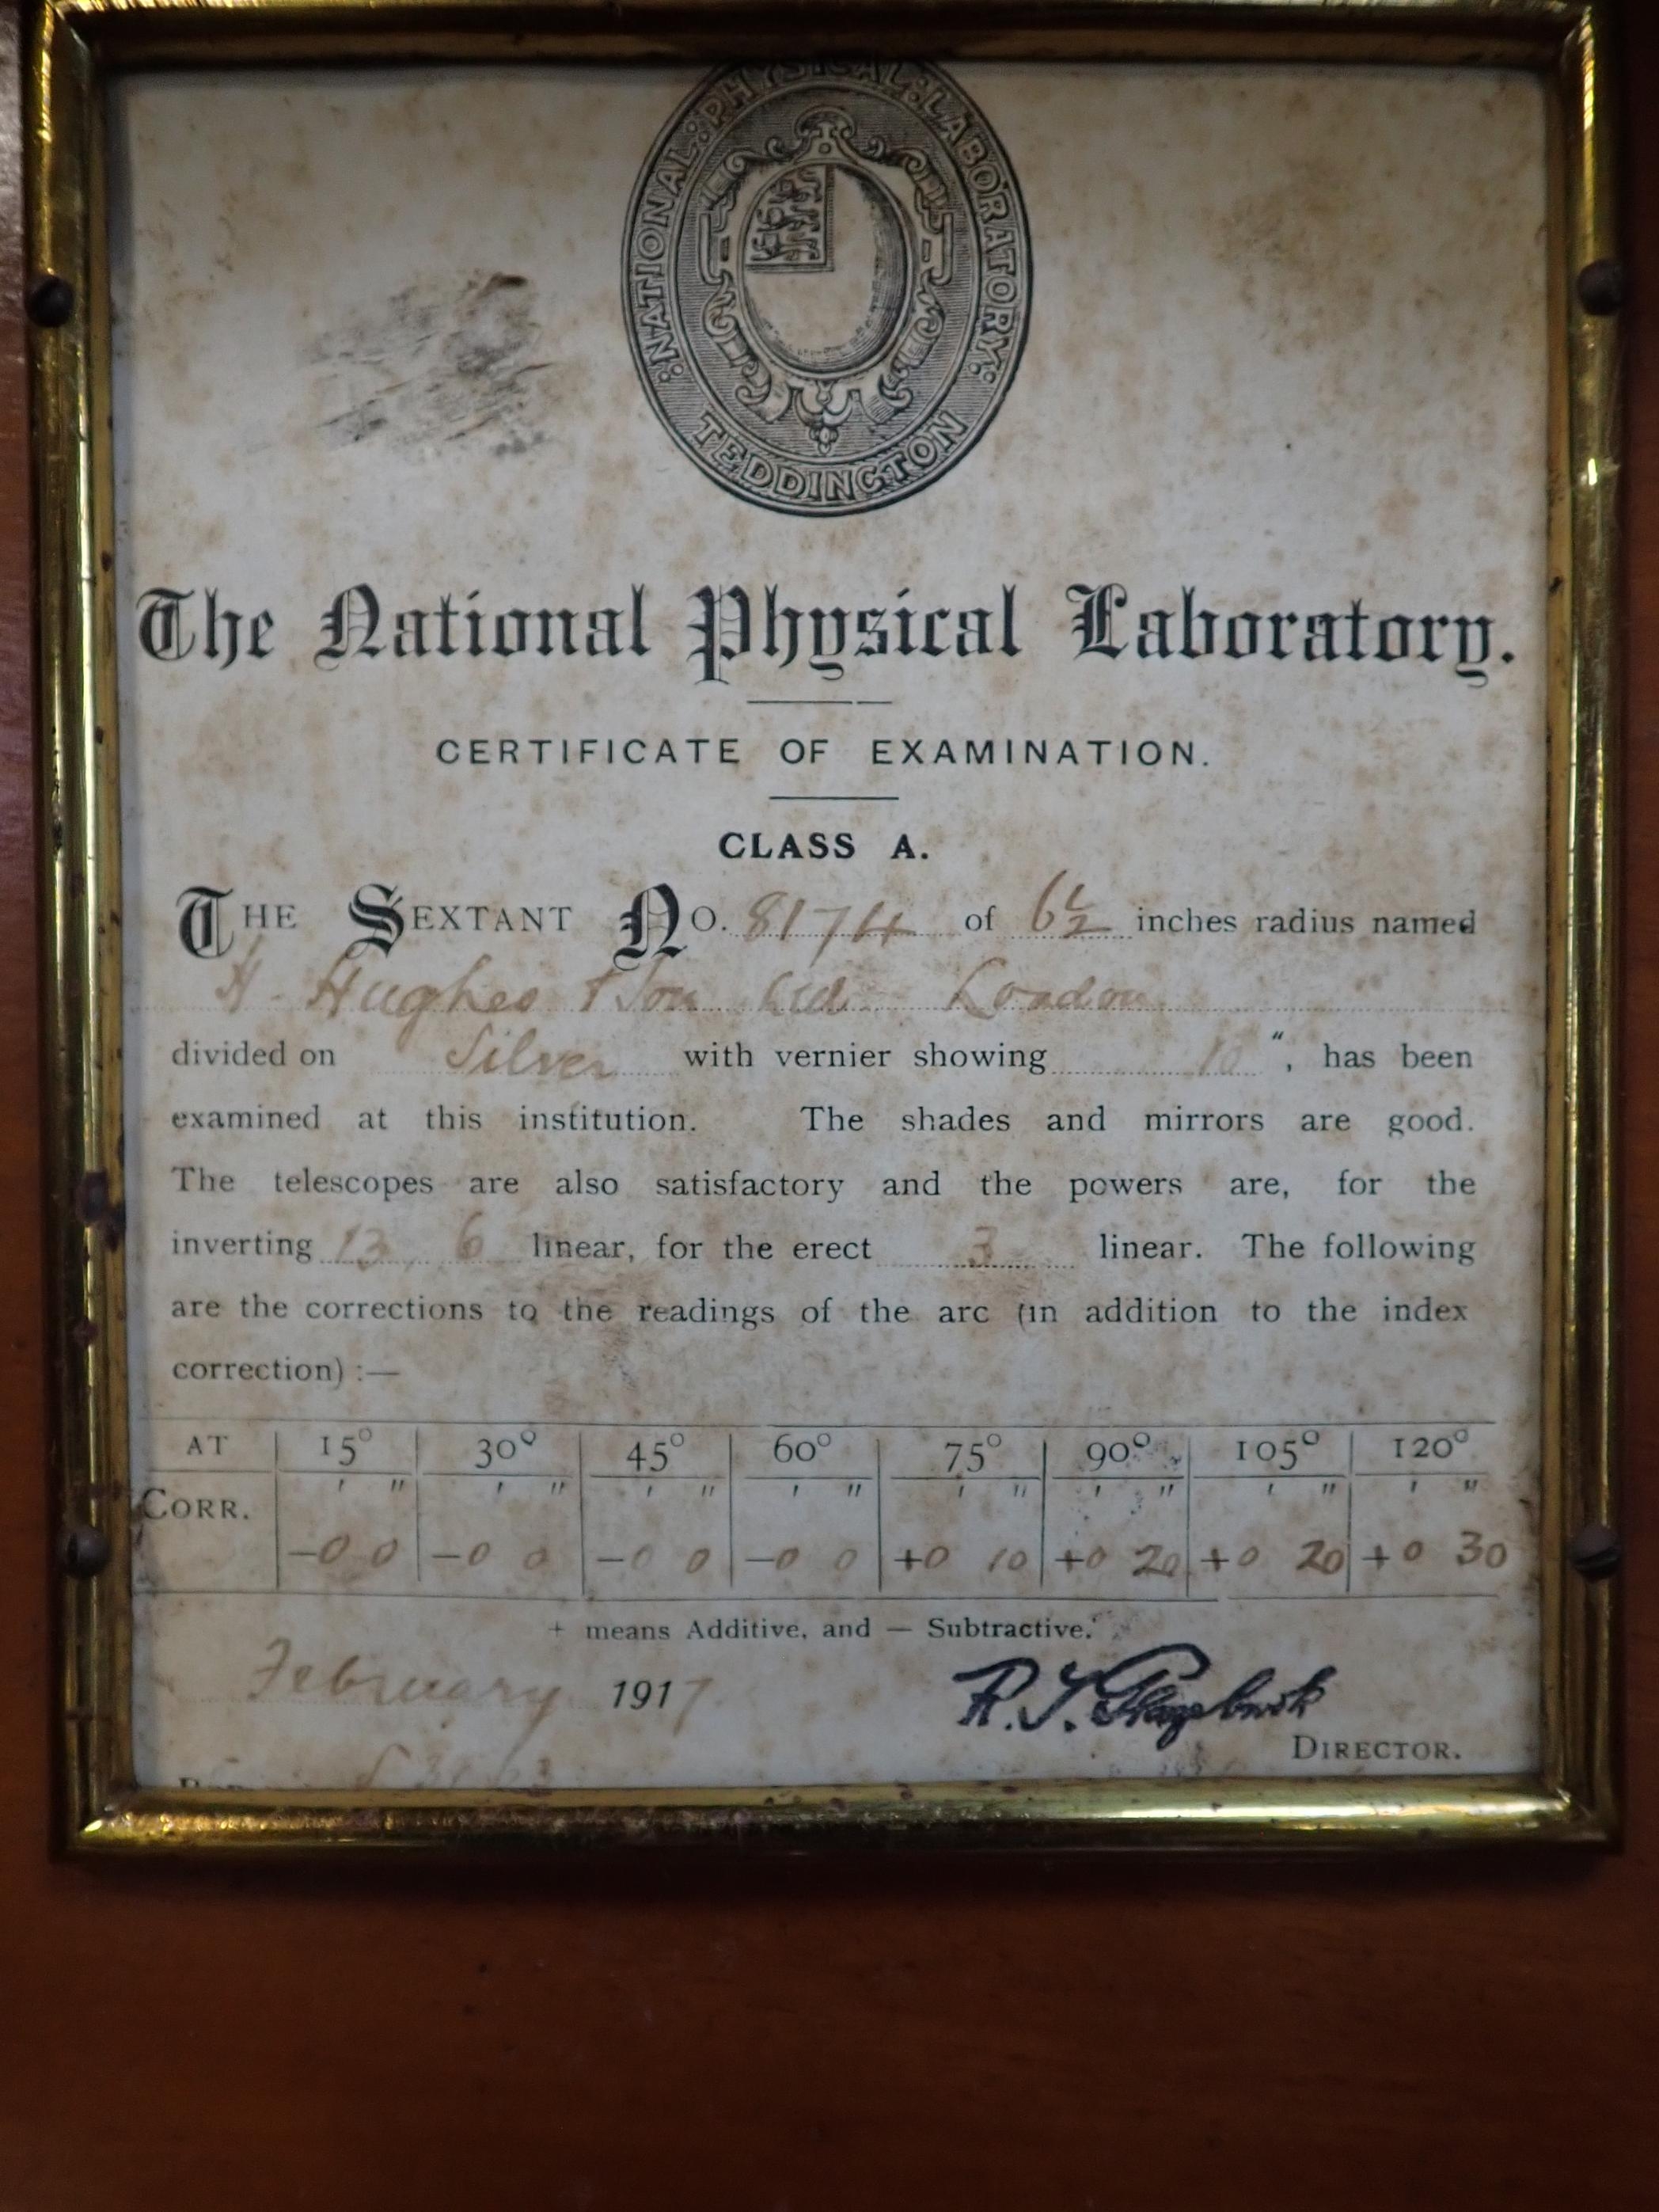 : NATIONAL : PHYSICAL : LABORATORY :
TEDDINGTON
The National Physical Laboratory.
CERTIFICATE OF EXAMINATION.
CLASS A.
THE SEXTANT No. 8174 of 6½ inches radius named
H. Hughes & Son Ltd - London
divided on Silver with vernier showing 10 ", has been
examined at this institution. The shades and mirrors are good.
The telescopes are also satisfactory and the powers are, for the
inverting 13 6 linear, for the erect 3 linear. The following
are the corrections to the readings of the arc (in addition to the index
correction) :—
AT 15° 30° 45° 60° 75° 90° 105° 120°
' " ' " ' " ' " ' " ' " ' " ' "
CORR.
-0 0 -0 0 -0 0 -0 0 +0 10 +0 20 +0 20 +0 30
+ means Additive, and — Subtractive.
February 1917
R. T. Glazebrook
DIRECTOR.